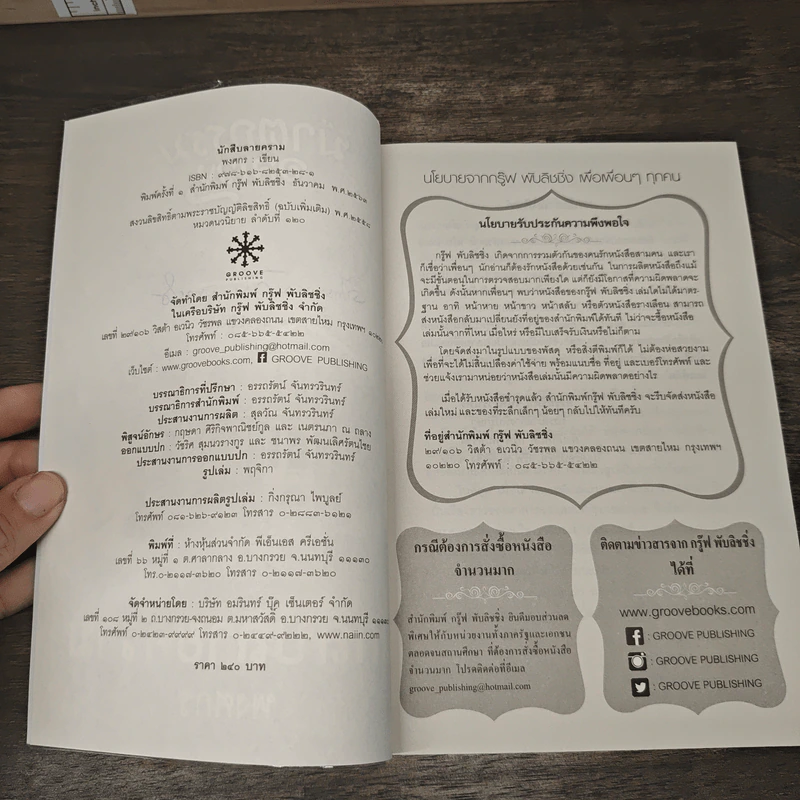 นักสืบลายคราม
พงศกร : เขียน
ISBN : ๙๗๘-๖๑๖-๘๒๕๓-๒๘-๑
พิมพ์ครั้งที่ ๑ สำนักพิมพ์ กรู๊ฟ พับลิชชิ่ง ธันวาคม พ.ศ.๒๕๖๑
สงวนลิขสิทธิ์ตามพระราชบัญญัติลิขสิทธิ์ (ฉบับเพิ่มเติม) พ.ศ.๒๕๕๘
หมวดนวนิยาย ลำดับที่ ๑๒๐
GROOVE
PUBLISHING
จัดทำโดย สำนักพิมพ์ กรู๊ฟ พับลิชชิ่ง
ในเครือบริษัท กรู๊ฟ พับลิชชิ่ง จำกัด
เลขที่ ๒๙/๑๐๖ วิสต้า อเวนิว วัชรพล แขวงคลองถนน เขตสายไหม กรุงเทพฯ ๑๐๒๒๐
โทรศัพท์ : ๐๘๕-๖๖๕-๕๔๒๒
อีเมล : groove_publishing@hotmail.com
เว็บไซต์ : www.groovebooks.com, GROOVE PUBLISHING
บรรณาธิการที่ปรึกษา : อรรถรัตน์ จันทรวรินทร์
บรรณาธิการสำนักพิมพ์ : อรรถรัตน์ จันทรวรินทร์
ประสานงานการผลิต : สุลวัณ จันทรวรินทร์
พิสูจน์อักษร : กฤษดา ศิริกิจพาณิชย์กูล และ เนตรนภา ณ ถลาง
ออกแบบปก : วัชริศ สุมนวรางกูร และ ชนาพร พัฒนเลิศรัตนไชย
ประสานงานการออกแบบปก : อรรถรัตน์ จันทรวรินทร์
รูปเล่ม : พฤจิกา
ประสานงานการผลิตรูปเล่ม : กิ่งกรุณา ไพบูลย์
โทรศัพท์ ๐๘๑-๖๒๖-๙๑๒๓ โทรสาร ๐-๒๘๘๓-๖๑๒๑
พิมพ์ที่ : ห้างหุ้นส่วนจำกัด พีเอ็นเอส ครีเอชั่น
เลขที่ ๖๖ หมู่ที่ ๑ ต.ศาลากลาง อ.บางกรวย จ.นนทบุรี ๑๑๑๓๐
โทร.๐-๒๑๑๗-๓๖๒๐ โทรสาร ๐-๒๑๑๗-๓๖๒๐
จัดจำหน่ายโดย : บริษัท อมรินทร์ บุ๊ค เซ็นเตอร์ จำกัด
เลขที่ ๑๐๘ หมู่ที่ ๒ ถ.บางกรวย-จงถนอม ต.มหาสวัสดิ์ อ.บางกรวย จ.นนทบุรี ๑๑๑๓๐
โทรศัพท์ ๐-๒๔๒๓-๙๙๙๙ โทรสาร ๐-๒๔๔๙-๙๒๒๒, www.naiin.com
ราคา ๒๔๐ บาท
นโยบายจากกรู๊ฟ พับลิชชิ่ง เพื่อเพื่อนๆ ทุกคน
นโยบายรับประกันความพึงพอใจ
กรู๊ฟ พับลิชชิ่ง เกิดจากการรวมตัวกันของคนรักหนังสือสามคน และเรา
ก็เชื่อว่าเพื่อนๆ นักอ่านก็ต้องรักหนังสือด้วยเช่นกัน ในการผลิตหนังสือถึงแม้
จะมีขั้นตอนในการตรวจสอบมากเพียงใด แต่ก็ยังมีโอกาสที่ความผิดพลาดจะ
เกิดขึ้น ดังนั้นหากเพื่อนๆ พบว่าหนังสือของกรู๊ฟ พับลิชชิ่ง เล่มใดไม่ได้มาตร-
ฐาน อาทิ หน้าหาย หน้าขาว หน้าสลับ หรือตัวหนังสือรางเลือน สามารถ
ส่งหนังสือกลับมาเปลี่ยนยังที่อยู่ของสำนักพิมพ์ได้ทันที ไม่ว่าจะซื้อหนังสือ
เล่มนั้นจากที่ไหน เมื่อไหร่ หรือมีใบเสร็จรับเงินหรือไม่ก็ตาม
โดยจัดส่งมาในรูปแบบของพัสดุ หรือสิ่งตีพิมพ์ก็ได้ ไม่ต้องห่อสวยงาม
เพื่อที่จะได้ไม่สิ้นเปลืองค่าใช้จ่าย พร้อมแนบชื่อ ที่อยู่ และเบอร์โทรศัพท์ และ
ช่วยแจ้งเรามาหน่อยว่าหนังสือเล่มนั้นมีความผิดพลาดอย่างไร
เมื่อได้รับหนังสือชำรุดแล้ว สำนักพิมพ์กรู๊ฟ พับลิชชิ่ง จะรีบจัดส่งหนังสือ
เล่มใหม่ และของที่ระลึกเล็กๆ น้อยๆ กลับไปให้ทันทีครับ
ที่อยู่สำนักพิมพ์ กรู๊ฟ พับลิชชิ่ง
๒๙/๑๐๖ วิสต้า อเวนิว วัชรพล แขวงคลองถนน เขตสายไหม กรุงเทพฯ
๑๐๒๒๐ โทรศัพท์ : ๐๘๕-๖๖๕-๕๔๒๒
กรณีต้องการสั่งซื้อหนังสือ
จำนวนมาก
สำนักพิมพ์ กรู๊ฟ พับลิชชิ่ง ยินดีมอบส่วนลด
พิเศษให้กับหน่วยงานทั้งภาครัฐและเอกชน
ตลอดจนสถานศึกษา ที่ต้องการสั่งซื้อหนังสือ
จำนวนมาก โปรดติดต่อที่อีเมล
groove_publishing@hotmail.com
ติดตามข่าวสารจาก กรู๊ฟ พับลิชชิ่ง
ได้ที่
www.groovebooks.com
: GROOVE PUBLISHING
: GROOVE PUBLISHING
: GROOVE PUBLISHING